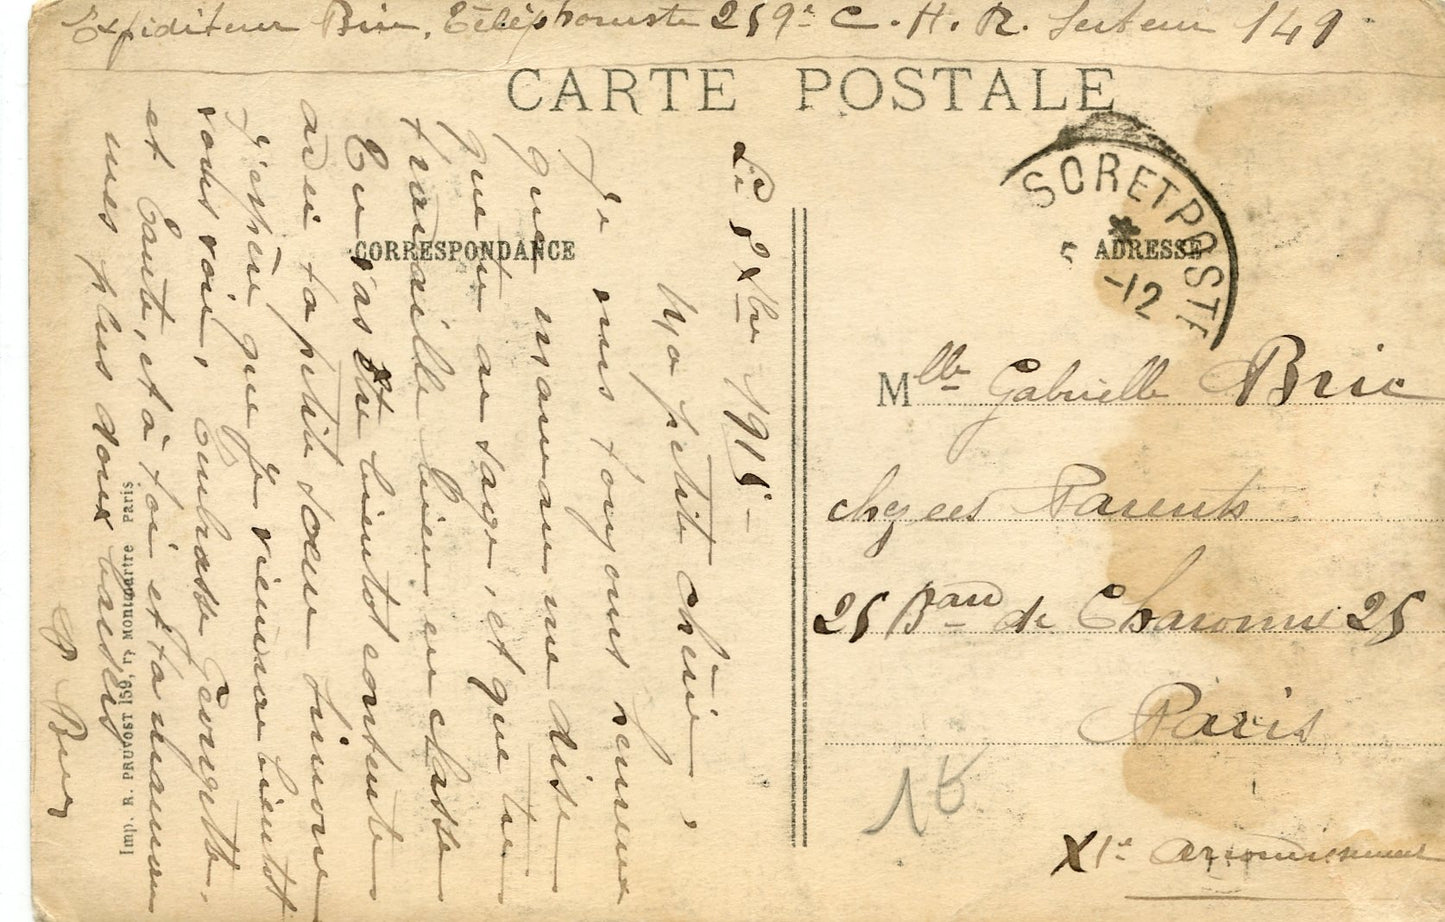 Expéditeur Brie, Téléphoniste 259e C.H.R. Secteur 149
CARTE POSTALE
CORRESPONDANCE
ADRESSE
SORET POSTE
5 -12
Le 5 Xbre 1915
Ma petite chérie,
Je suis toujours heureux
que maman me dise
que tu es sage, et que tu
travaille bien en classe
Tu vas être bientot contente
avec ta petite sœur Simone
J'espère que je viendrai bientot
vous voir, embrasse Georgette,
et Tante, et à toi et ta maman
mes plus doux baisers
Brie
Mlle Gabrielle Brie
chez ses Parents
25 Bard de Charonne 25
Paris
XIe arrondissement
15
Imp. R. PRUVOST 159, r. MONTMARTRE PARIS